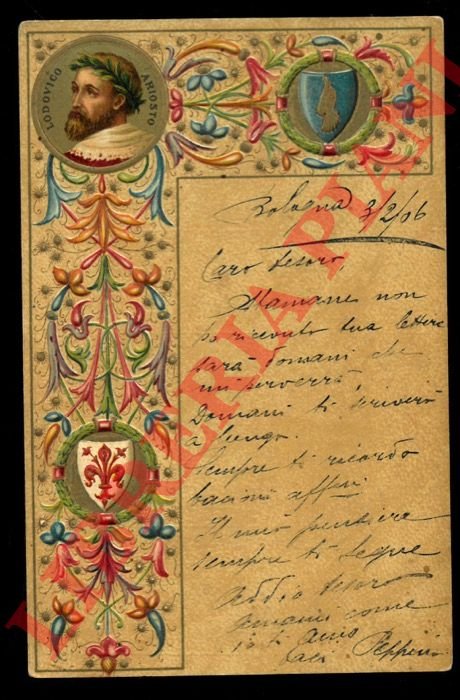 LODOVICO ARIOSTO
Bologna 3/2/06
Caro tesoro,
Stamane non
ho ricevuto tua lettera
sarà domani che
mi perverrà,
Domani ti scriverò
a lungo.
Sempre ti ricordo
bacioni affmi
Il mio pensiero
sempre ti segue
Addio tesoro
amami come
io ti amo
Peppino
LIBRERIA PIANI